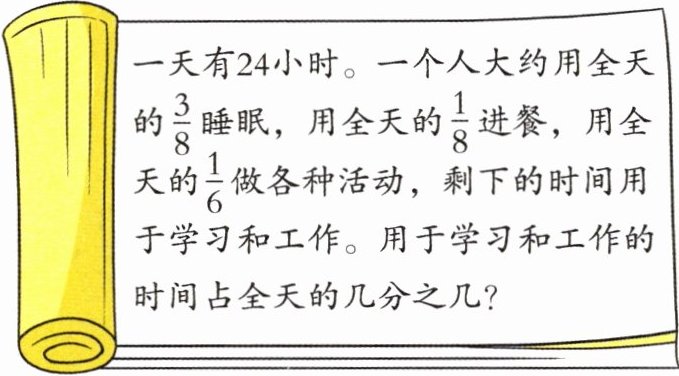 一天有24小时。一个人大约用全天
的3/8睡眠，用全天的1/8进餐，用全
天的1/6做各种活动，剩下的时间用
于学习和工作。用于学习和工作的
时间占全天的几分之几？